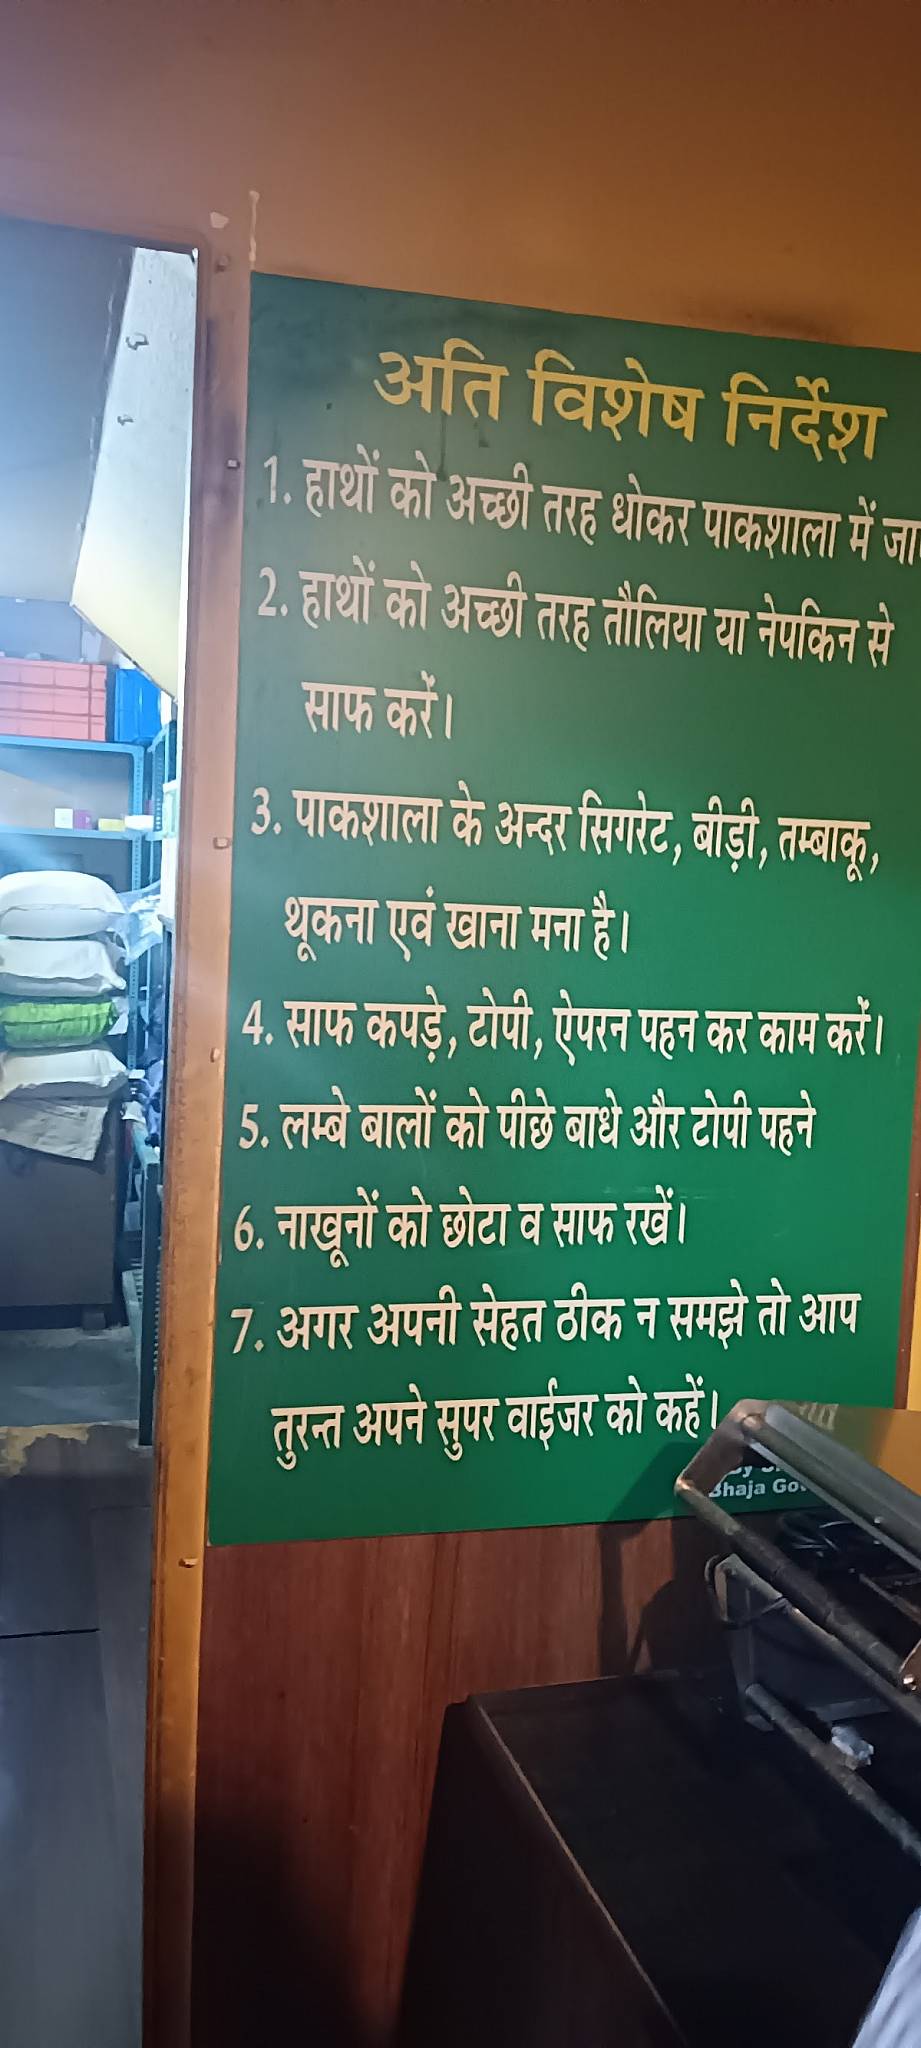 अति विशेष निर्देश
1. हाथों को अच्छी तरह धोकर पाकशाला में
2. हाथों को अच्छी तरह तौलिया या नेपकिन से
साफ करें।
3. पाकशाला के अन्दर सिगरेट, बीड़ी, तम्बाकू,
थूकना एवं खाना मना है।
4. साफ कपड़े, टोपी, ऐपरन पहन कर काम करें।
5. लम्बे बालों को पीछे बाधे और टोपी पहने
6. नाखूनों को छोटा व साफ रखें।
7. अगर अपनी सेहत ठीक न समझे तो आप
तुरन्त अपने सुपर वाईजर को कहें।
Bhaja